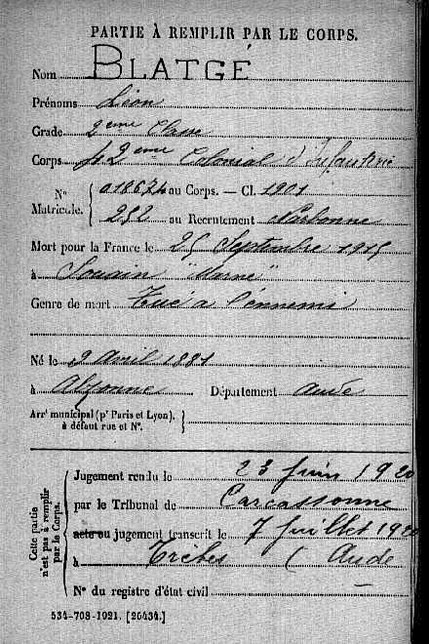 PARTIE À REMPLIR PAR LE CORPS.
Nom BLATGÉ
Prénoms Léon
Grade 2eme Classe
Corps 42eme Colonial d'Infanterie
N° Matricule. { 018674 au Corps. — Cl. 1901
252 au Recrutement Narbonne
Mort pour la France le 25 Septembre 1915
à Souain "Marne"
Genre de mort Tué à l'ennemi
Né le 9 Avril 1881
à Alzonne Département Aude
Arr' municipal (p' Paris et Lyon), à défaut rue et N°. }
Cette partie n'est pas à remplir par le Corps.
Jugement rendu le 23 Juin 1920
par le Tribunal de Carcassonne
acte ou jugement transcrit le 7 Juillet 1920
à Trèbes (Aude
N° du registre d'état civil
534-708-1921. [26434.]